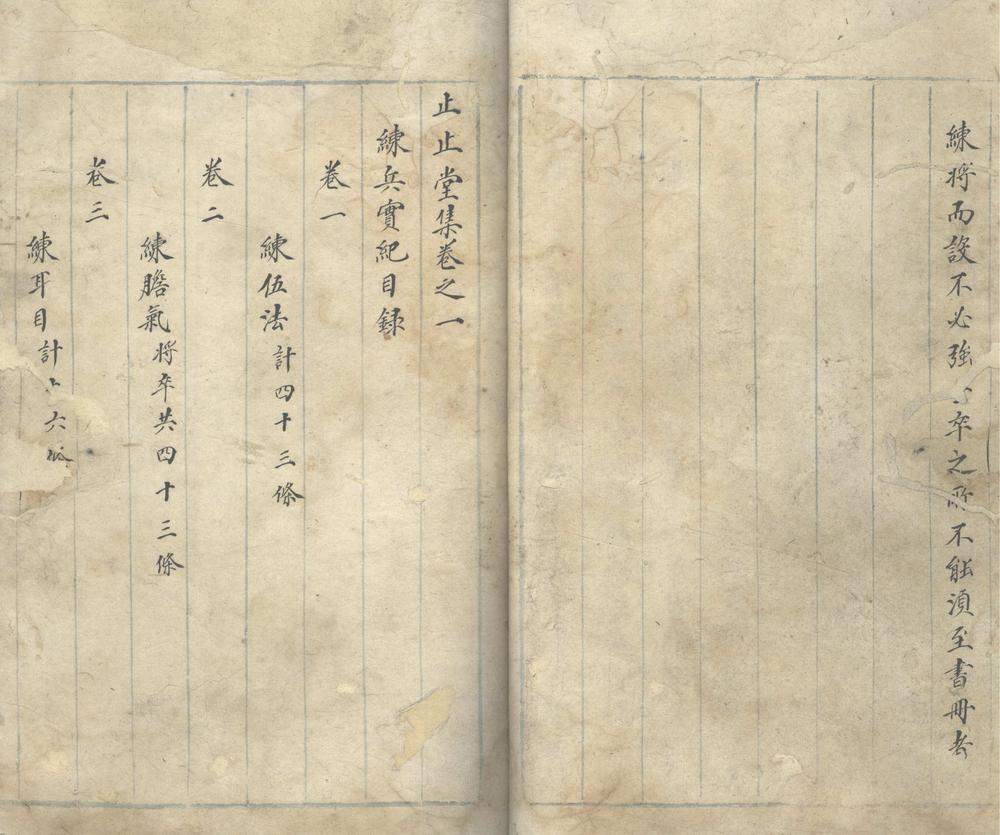 練將而設不必強 卒之所不能須至書冊者
止止堂集卷之一
練兵實紀目録
卷一
練伍法計四十三條
卷二
練膽氣將卒共四十三條
卷三
練耳目計 六